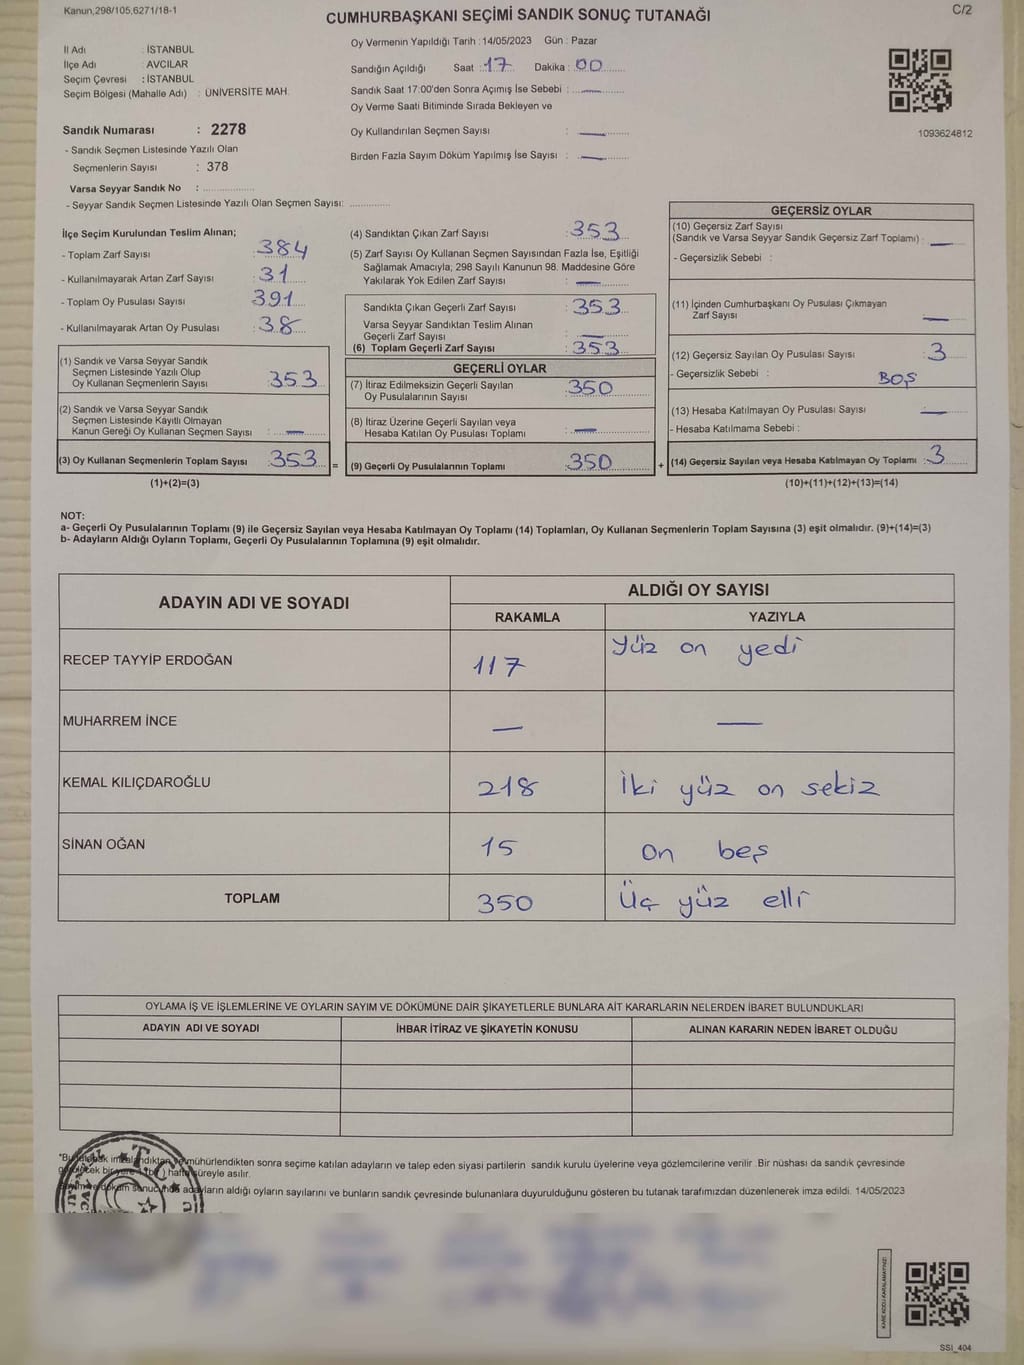 Kanun,298/105,6271/18-1
CUMHURBAŞKANI SEÇİMİ SANDIK SONUÇ TUTANAĞI
C/2
İl Adı : İSTANBUL
İlçe Adı : AVCILAR
Seçim Çevresi : İSTANBUL
Seçim Bölgesi (Mahalle Adı) : ÜNİVERSİTE MAH.
Sandık Numarası : 2278
- Sandık Seçmen Listesinde Yazılı Olan
Seçmenlerin Sayısı : 378
Varsa Seyyar Sandık No : ................
- Seyyar Sandık Seçmen Listesinde Yazılı Olan Seçmen Sayısı: .............
Oy Vermenin Yapıldığı Tarih :14/05/2023 Gün : Pazar
Sandığın Açıldığı Saat : 17 Dakika : 00
Sandık Saat 17:00'den Sonra Açımış İse Sebebi : —
Oy Verme Saati Bitiminde Sırada Bekleyen ve
Oy Kullandırılan Seçmen Sayısı : —
Birden Fazla Sayım Döküm Yapılmış İse Sayısı : —
1093624812
İlçe Seçim Kurulundan Teslim Alınan;
- Toplam Zarf Sayısı : 384
- Kullanılmayarak Artan Zarf Sayısı : 31
- Toplam Oy Pusulası Sayısı : 391
- Kullanılmayarak Artan Oy Pusulası : 38
(1) Sandık ve Varsa Seyyar Sandık
Seçmen Listesinde Yazılı Olup
Oy Kullanan Seçmenlerin Sayısı : 353
(2) Sandık ve Varsa Seyyar Sandık
Seçmen Listesinde Kayıtlı Olmayan
Kanun Gereği Oy Kullanan Seçmen Sayısı : —
(3) Oy Kullanan Seçmenlerin Toplam Sayısı : 353 =
(1)+(2)=(3)
(4) Sandıktan Çıkan Zarf Sayısı : 353
(5) Zarf Sayısı Oy Kullanan Seçmen Sayısından Fazla İse, Eşitliği
Sağlamak Amacıyla; 298 Sayılı Kanunun 98. Maddesine Göre
Yakılarak Yok Edilen Zarf Sayısı : —
Sandıkta Çıkan Geçerli Zarf Sayısı : 353
Varsa Seyyar Sandıktan Teslim Alınan
Geçerli Zarf Sayısı : —
(6) Toplam Geçerli Zarf Sayısı : 353
GEÇERLİ OYLAR
(7) İtiraz Edilmeksizin Geçerli Sayılan
Oy Pusulalarının Sayısı : 350
(8) İtiraz Üzerine Geçerli Sayılan veya
Hesaba Katılan Oy Pusulası Toplamı : —
(9) Geçerli Oy Pusulalarının Toplamı : 350 +
GEÇERSİZ OYLAR
(10) Geçersiz Zarf Sayısı
(Sandık ve Varsa Seyyar Sandık Geçersiz Zarf Toplamı) : —
- Geçersizlik Sebebi :
(11) İçinden Cumhurbaşkanı Oy Pusulası Çıkmayan
Zarf Sayısı : —
(12) Geçersiz Sayılan Oy Pusulası Sayısı : 3
- Geçersizlik Sebebi : BOŞ
(13) Hesaba Katılmayan Oy Pusulası Sayısı : —
- Hesaba Katılmama Sebebi :
(14) Geçersiz Sayılan veya Hesaba Katılmayan Oy Toplamı : 3
(10)+(11)+(12)+(13)=(14)
NOT:
a- Geçerli Oy Pusulalarının Toplamı (9) ile Geçersiz Sayılan veya Hesaba Katılmayan Oy Toplamı (14) Toplamları, Oy Kullanan Seçmenlerin Toplam Sayısına (3) eşit olmalıdır. (9)+(14)=(3)
b- Adayların Aldığı Oyların Toplamı, Geçerli Oy Pusulalarının Toplamına (9) eşit olmalıdır.
ADAYIN ADI VE SOYADI
ALDIĞI OY SAYISI
RAKAMLA YAZIYLA
RECEP TAYYİP ERDOĞAN 117 Yüz on yedi
MUHARREM İNCE — —
KEMAL KILIÇDAROĞLU 218 İki yüz on sekiz
SİNAN OĞAN 15 on beş
TOPLAM 350 Üç yüz elli
OYLAMA İŞ VE İŞLEMLERİNE VE OYLARIN SAYIM VE DÖKÜMÜNE DAİR ŞİKAYETLERLE BUNLARA AİT KARARLARIN NELERDEN İBARET BULUNDUKLARI
ADAYIN ADI VE SOYADI İHBAR İTİRAZ VE ŞİKAYETİN KONUSU ALINAN KARARIN NEDEN İBARET OLDUĞU
mühürlendikten sonra seçime katılan adayların ve talep eden siyasi partilerin sandık kurulu üyelerine veya gözlemcilerine verilir. Bir nüshası da sandık çevresinde
süreyle asılır.
adayların aldığı oyların sayılarını ve bunların sandık çevresinde bulunanlara duyurulduğunu gösteren bu tutanak tarafımızdan düzenlenerek imza edildi. 14/05/2023
T.C.
SSI_404